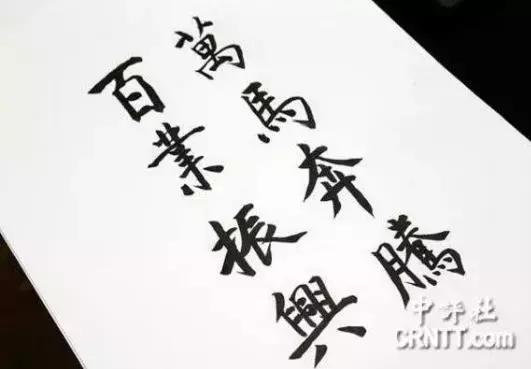 萬馬奔騰
百業振興
中評社
CRNTT.com